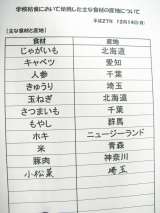 学校給食において使用した主な食材の産地について
平成27年 12月14日(月)
【主な食材と産地】
食材 産地
じゃがいも 北海道
キャベツ 愛知
人参 千葉
きゅうり 埼玉
玉ねぎ 北海道
さつまいも 千葉
もやし 群馬
ホキ ニュージーランド
米 青森
豚肉 神奈川
小松菜 埼玉